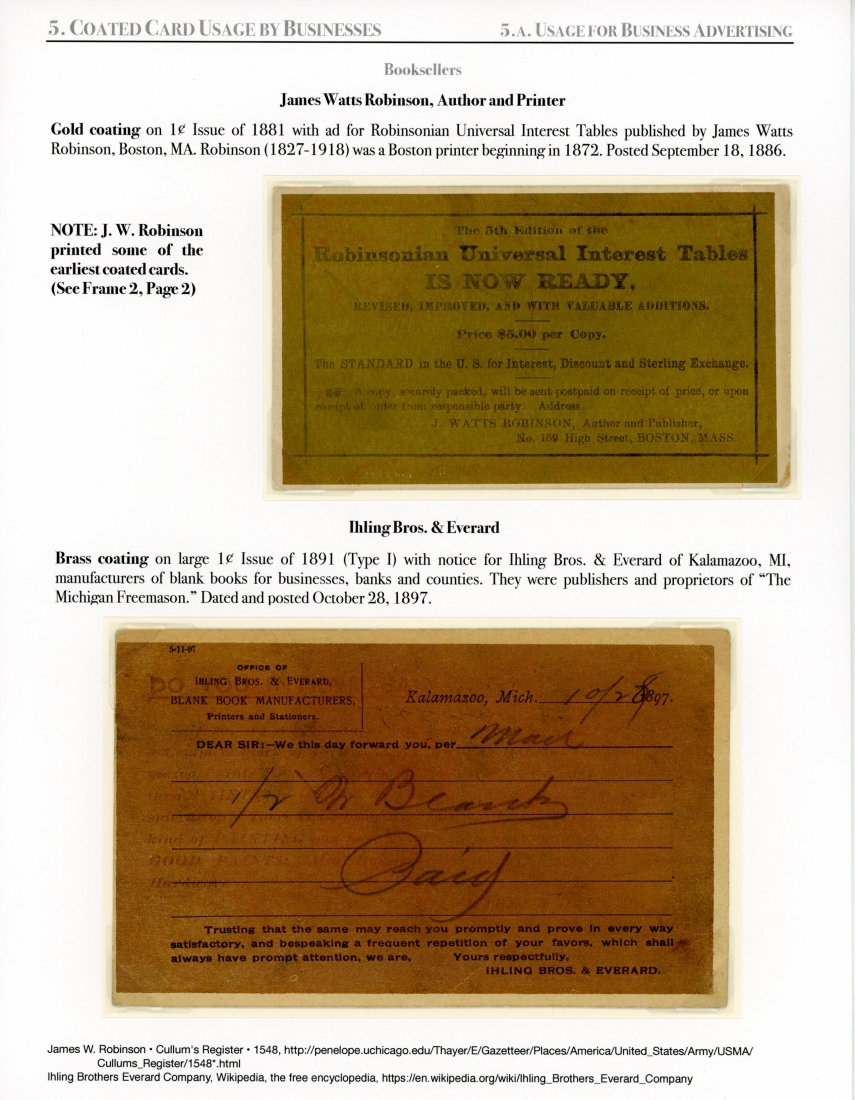 5. COATED CARD USAGE BY BUSINESSES
5.A. USAGE FOR BUSINESS ADVERTISING
Booksellers
James Watts Robinson, Author and Printer
Gold coating on 1¢ Issue of 1881 with ad for Robinsonian Universal Interest Tables published by James Watts
Robinson, Boston, MA. Robinson (1827-1918) was a Boston printer beginning in 1872. Posted September 18, 1886.
NOTE: J. W. Robinson
printed some of the
earliest coated cards.
(See Frame 2, Page 2)
The 5th Edition of the
Robinsonian Universal Interest Tables
IS NOW READY,
REVISED, IMPROVED, AND WITH VALUABLE ADDITIONS.
Price $5.00 per Copy.
The STANDARD in the U. S. for Interest, Discount and Sterling Exchange.
A copy, securely packed, will be sent postpaid on receipt of price, or upon
receipt of order from responsible party Address
J. WATTS ROBINSON, Author and Publisher,
No. 159 High Street, BOSTON, MASS.
Ihling Bros. & Everard
Brass coating on large 1¢ Issue of 1891 (Type I) with notice for Ihling Bros. & Everard of Kalamazoo, MI,
manufacturers of blank books for businesses, banks and counties. They were publishers and proprietors of “The
Michigan Freemason.” Dated and posted October 28, 1897.
5-11-97
OFFICE OF
IHLING BROS. & EVERARD,
BLANK BOOK MANUFACTURERS,
Printers and Stationers.
Kalamazoo, Mich. 10/28 1897.
DEAR SIR:—We this day forward you, per Mail
1/2 M Blanks
Paid
Trusting that the same may reach you promptly and prove in every way
satisfactory, and bespeaking a frequent repetition of your favors, which shall
always have prompt attention, we are, Yours respectfully,
IHLING BROS. & EVERARD.
James W. Robinson • Cullum's Register • 1548, http://penelope.uchicago.edu/Thayer/E/Gazetteer/Places/America/United_States/Army/USMA/
Cullums_Register/1548*.html
Ihling Brothers Everard Company, Wikipedia, the free encyclopedia, https://en.wikipedia.org/wiki/Ihling_Brothers_Everard_Company